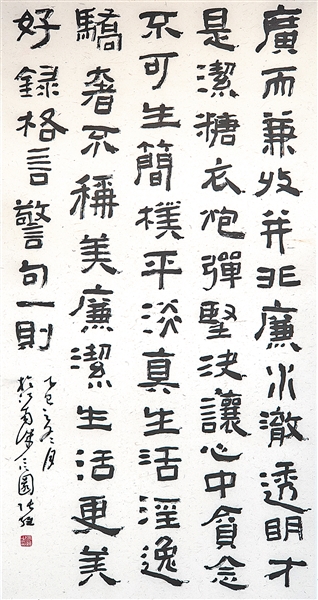 廣而兼收并非廉水澈透明才
是潔糖衣炮彈堅決讓心中貪念
不可生簡樸平淡真生活淫逸
驕奢不稱美廉潔生活更美
好録格言警句一則
乙巳冬月
於園